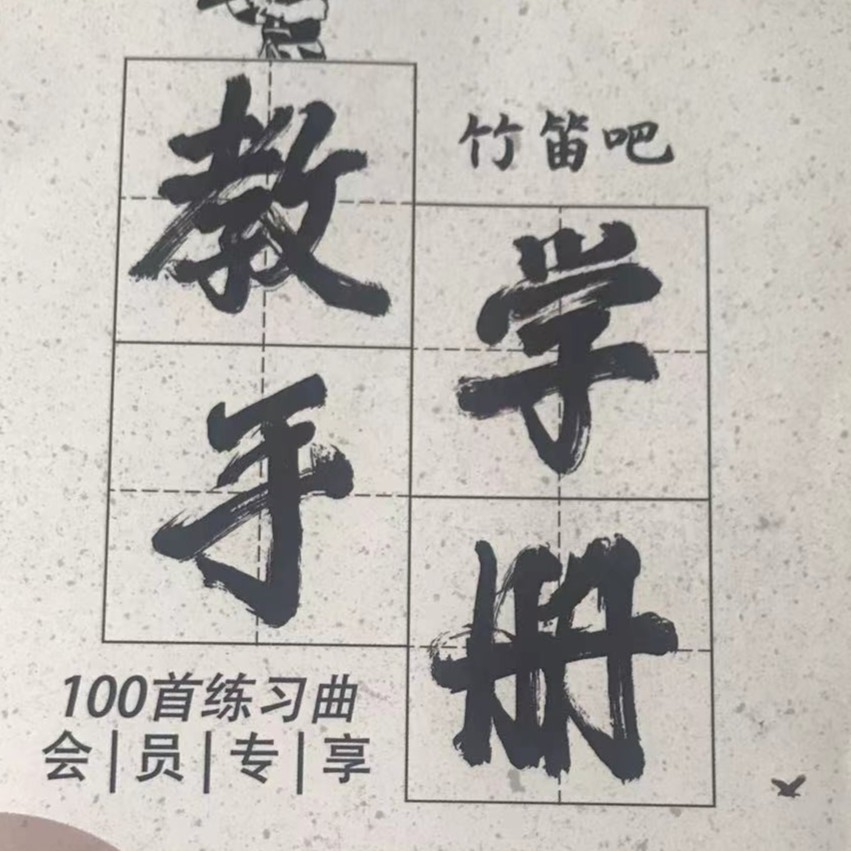 竹笛吧
教学
手册
100首练习曲
会|员|专|享